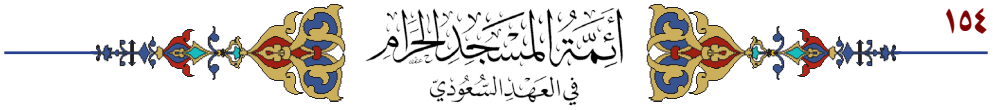 ١٥٤
أَئِمَّةُ المَسْجِدِ الحَرَامِ
فِي العَهْدِ السُّعُودِيِّ